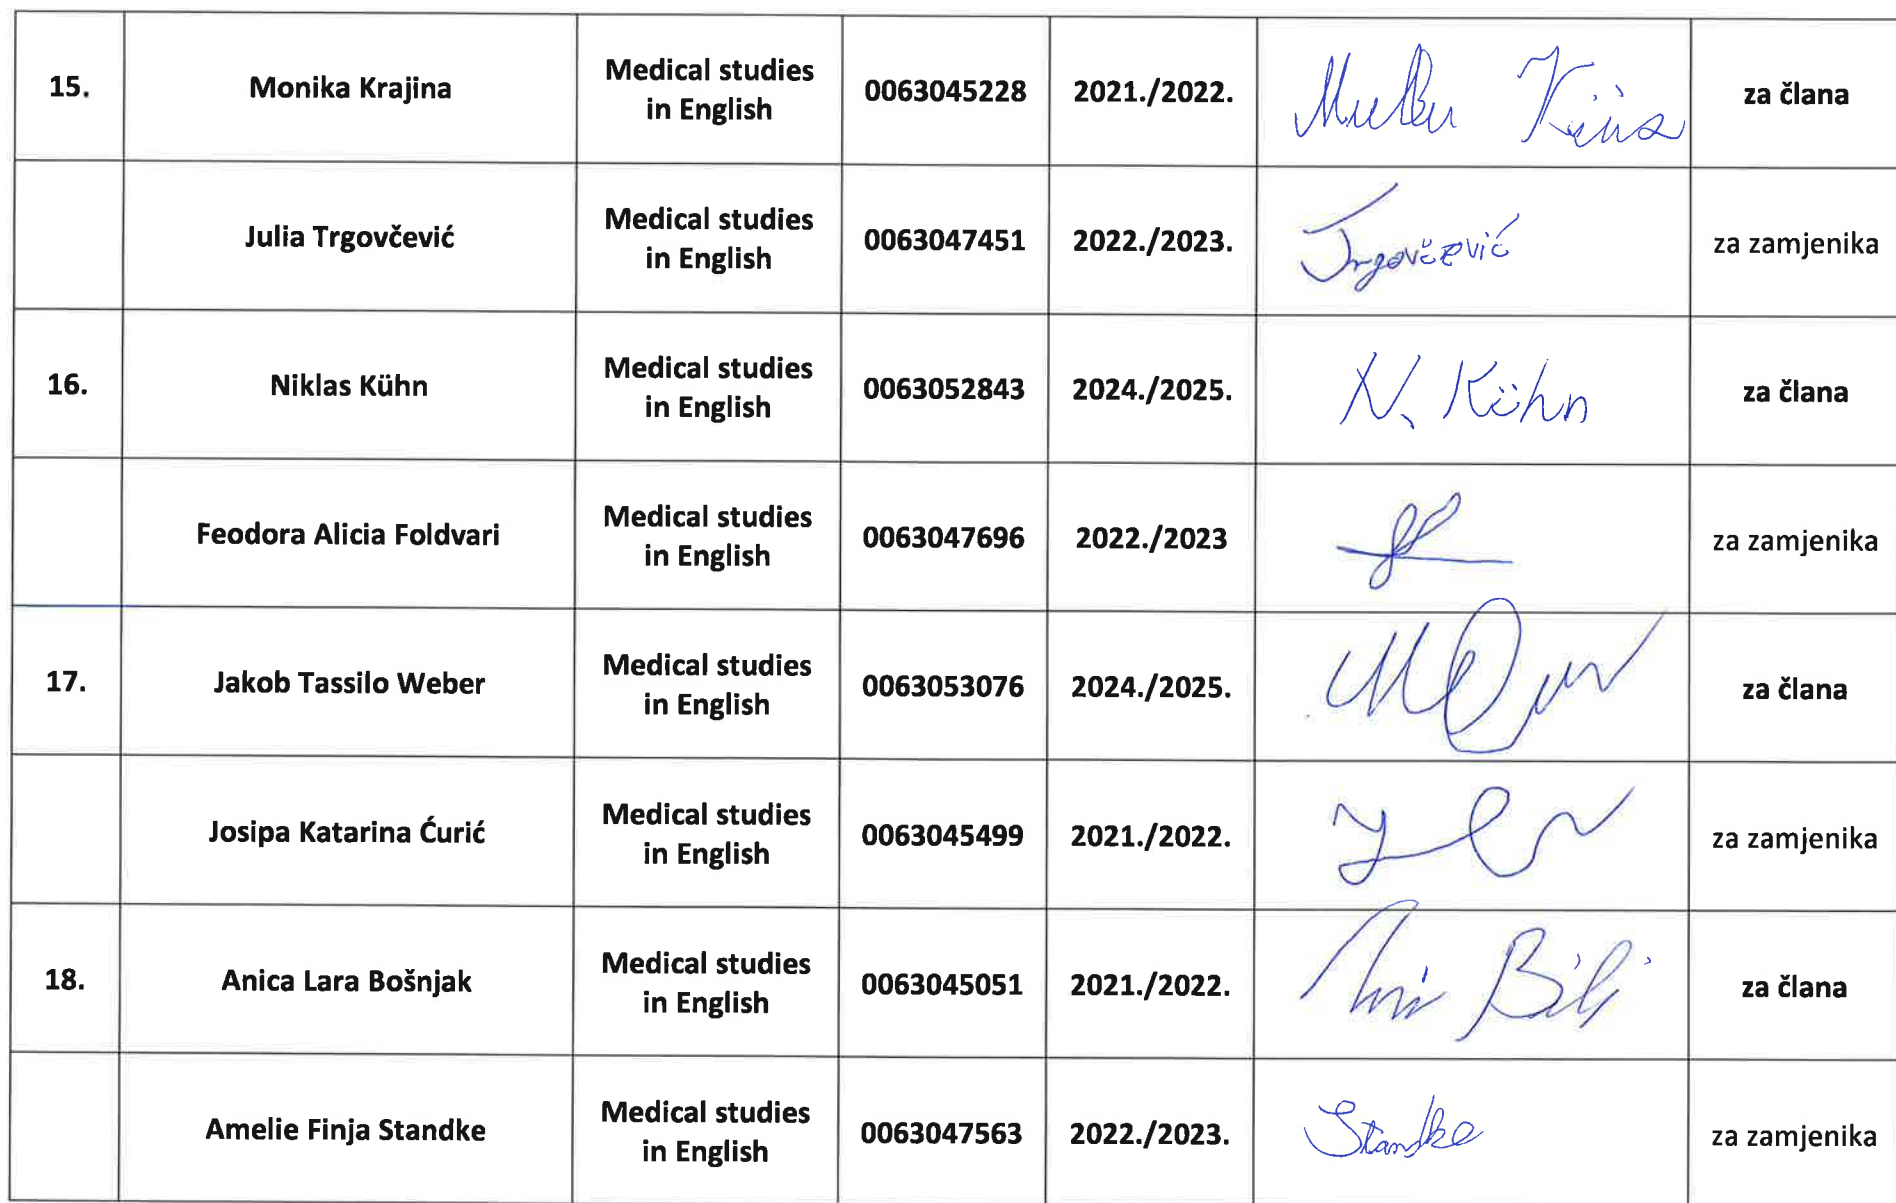 15. Monika Krajina Medical studies in English 0063045228 2021./2022. za člana
Julia Trgovčević Medical studies in English 0063047451 2022./2023. Trgovčević za zamjenika
16. Niklas Kühn Medical studies in English 0063052843 2024./2025. N. Kühn za člana
Feodora Alicia Foldvari Medical studies in English 0063047696 2022./2023 za zamjenika
17. Jakob Tassilo Weber Medical studies in English 0063053076 2024./2025. za člana
Josipa Katarina Ćurić Medical studies in English 0063045499 2021./2022. za zamjenika
18. Anica Lara Bošnjak Medical studies in English 0063045051 2021./2022. za člana
Amelie Finja Standke Medical studies in English 0063047563 2022./2023. Standke za zamjenika